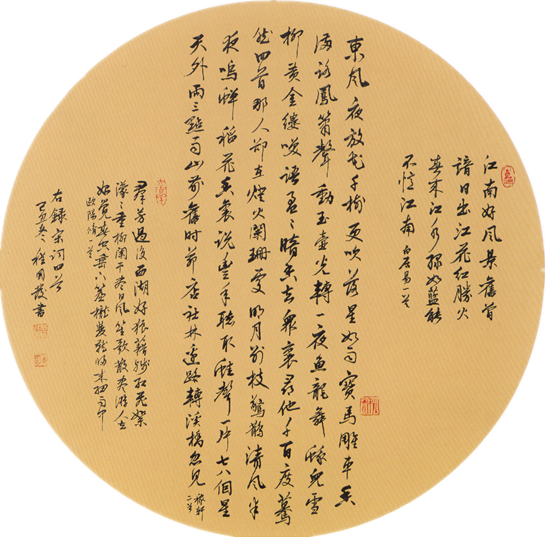 江南好風景舊曾
諳日出江花紅勝火
春來江水綠如藍能
不憶江南 白居易一首
東風夜放花千樹更吹落星如雨寶馬雕車香
滿路鳳簫聲動玉壺光轉一夜魚龍舞蛾兒雪
柳黃金縷笑語盈盈暗香去眾裏尋他千百度驀
然回首那人卻在燈火闌珊處明月別枝驚鵲清風半
夜鳴蟬稻花香裏說豐年聽取蛙聲一片七八個星
天外兩三點雨山前舊時茅店社林邊路轉溪橋忽見 稼軒二首
群芳過後西湖好狼籍殘紅飛絮
濛濛垂柳闌干盡日風笙歌散盡遊人去
始覺春空垂下簾櫳雙燕歸來細雨中
歐陽修一首
右錄宋詞四首
己丑冬 程書